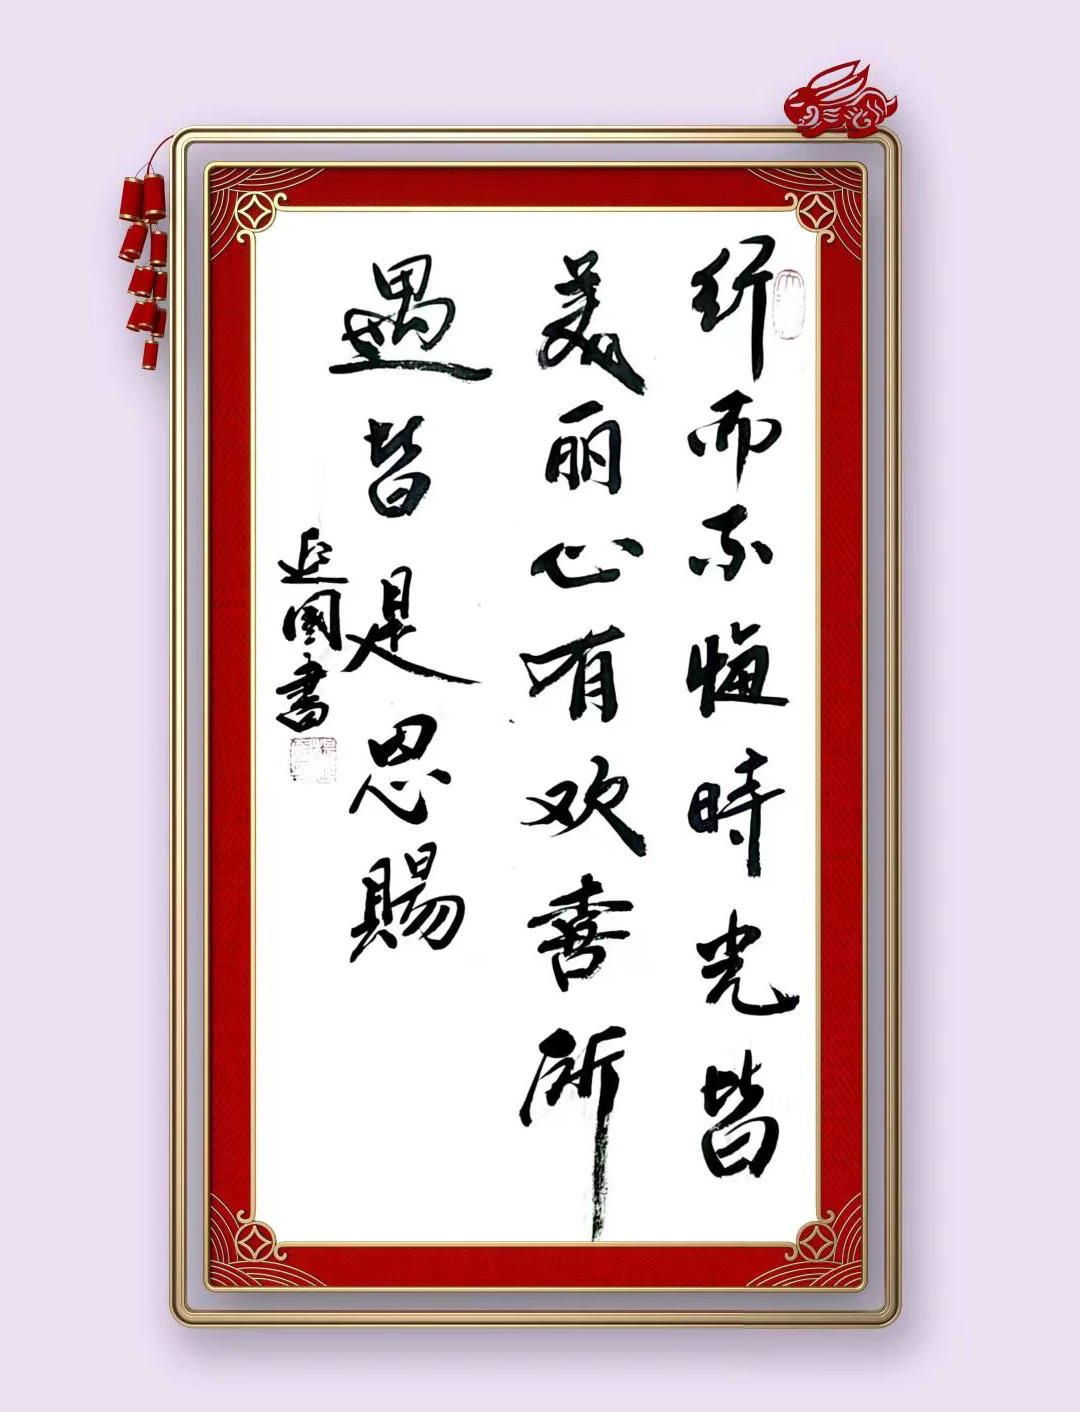 行而不悔時光皆
美丽心有欢喜所
遇皆是恩賜
延國書